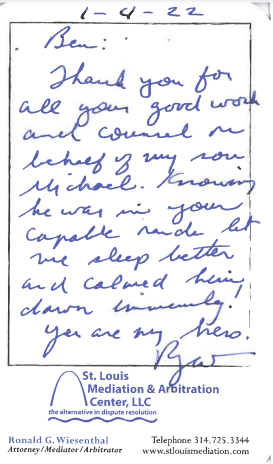 1-4-22
Ben:
Thank you for
all your good work
and counsel on
behalf of my son
Michael. Knowing
he was in your
capable hands let
me sleep better
and calmed him
down immensely!
You are my hero.
St. Louis
Mediation & Arbitration
Center, LLC
the alternative in dispute resolution
Ronald G. Wiesenthal
Attorney/Mediator/Arbitrator
Telephone 314.725.3344
www.stlouismediation.com